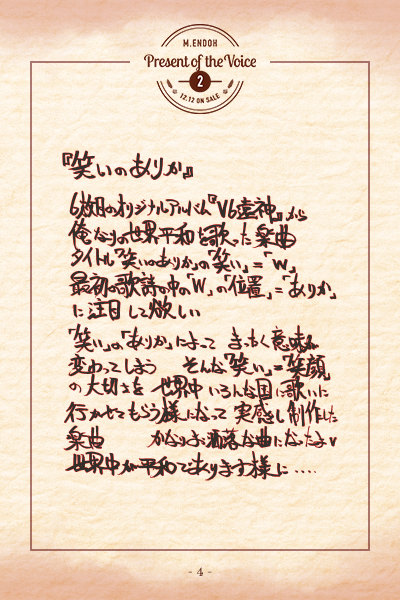 M.ENDOH
Present of the Voice
2
12.12 ON SALE
『笑いのありか』
6枚目のオリジナルアルバム『V6壼神』から
俺なりの世界平和を歌った楽曲
タイトル「笑いのありか」の「笑い」=「w」
最初の歌詩の中の「W」の「位置」=「ありか」
に注目して欲しい
「笑い」の「ありか」によって まったく意味が
変わってしまう そんな「笑い」=「笑顔」
の大切さを 世界中いろんな国に歌いに
行かせてもらう様になって 実感し制作した
楽曲 かなりお洒落な曲になったよv
世界中が平和であります様に‥‥
- 4 -